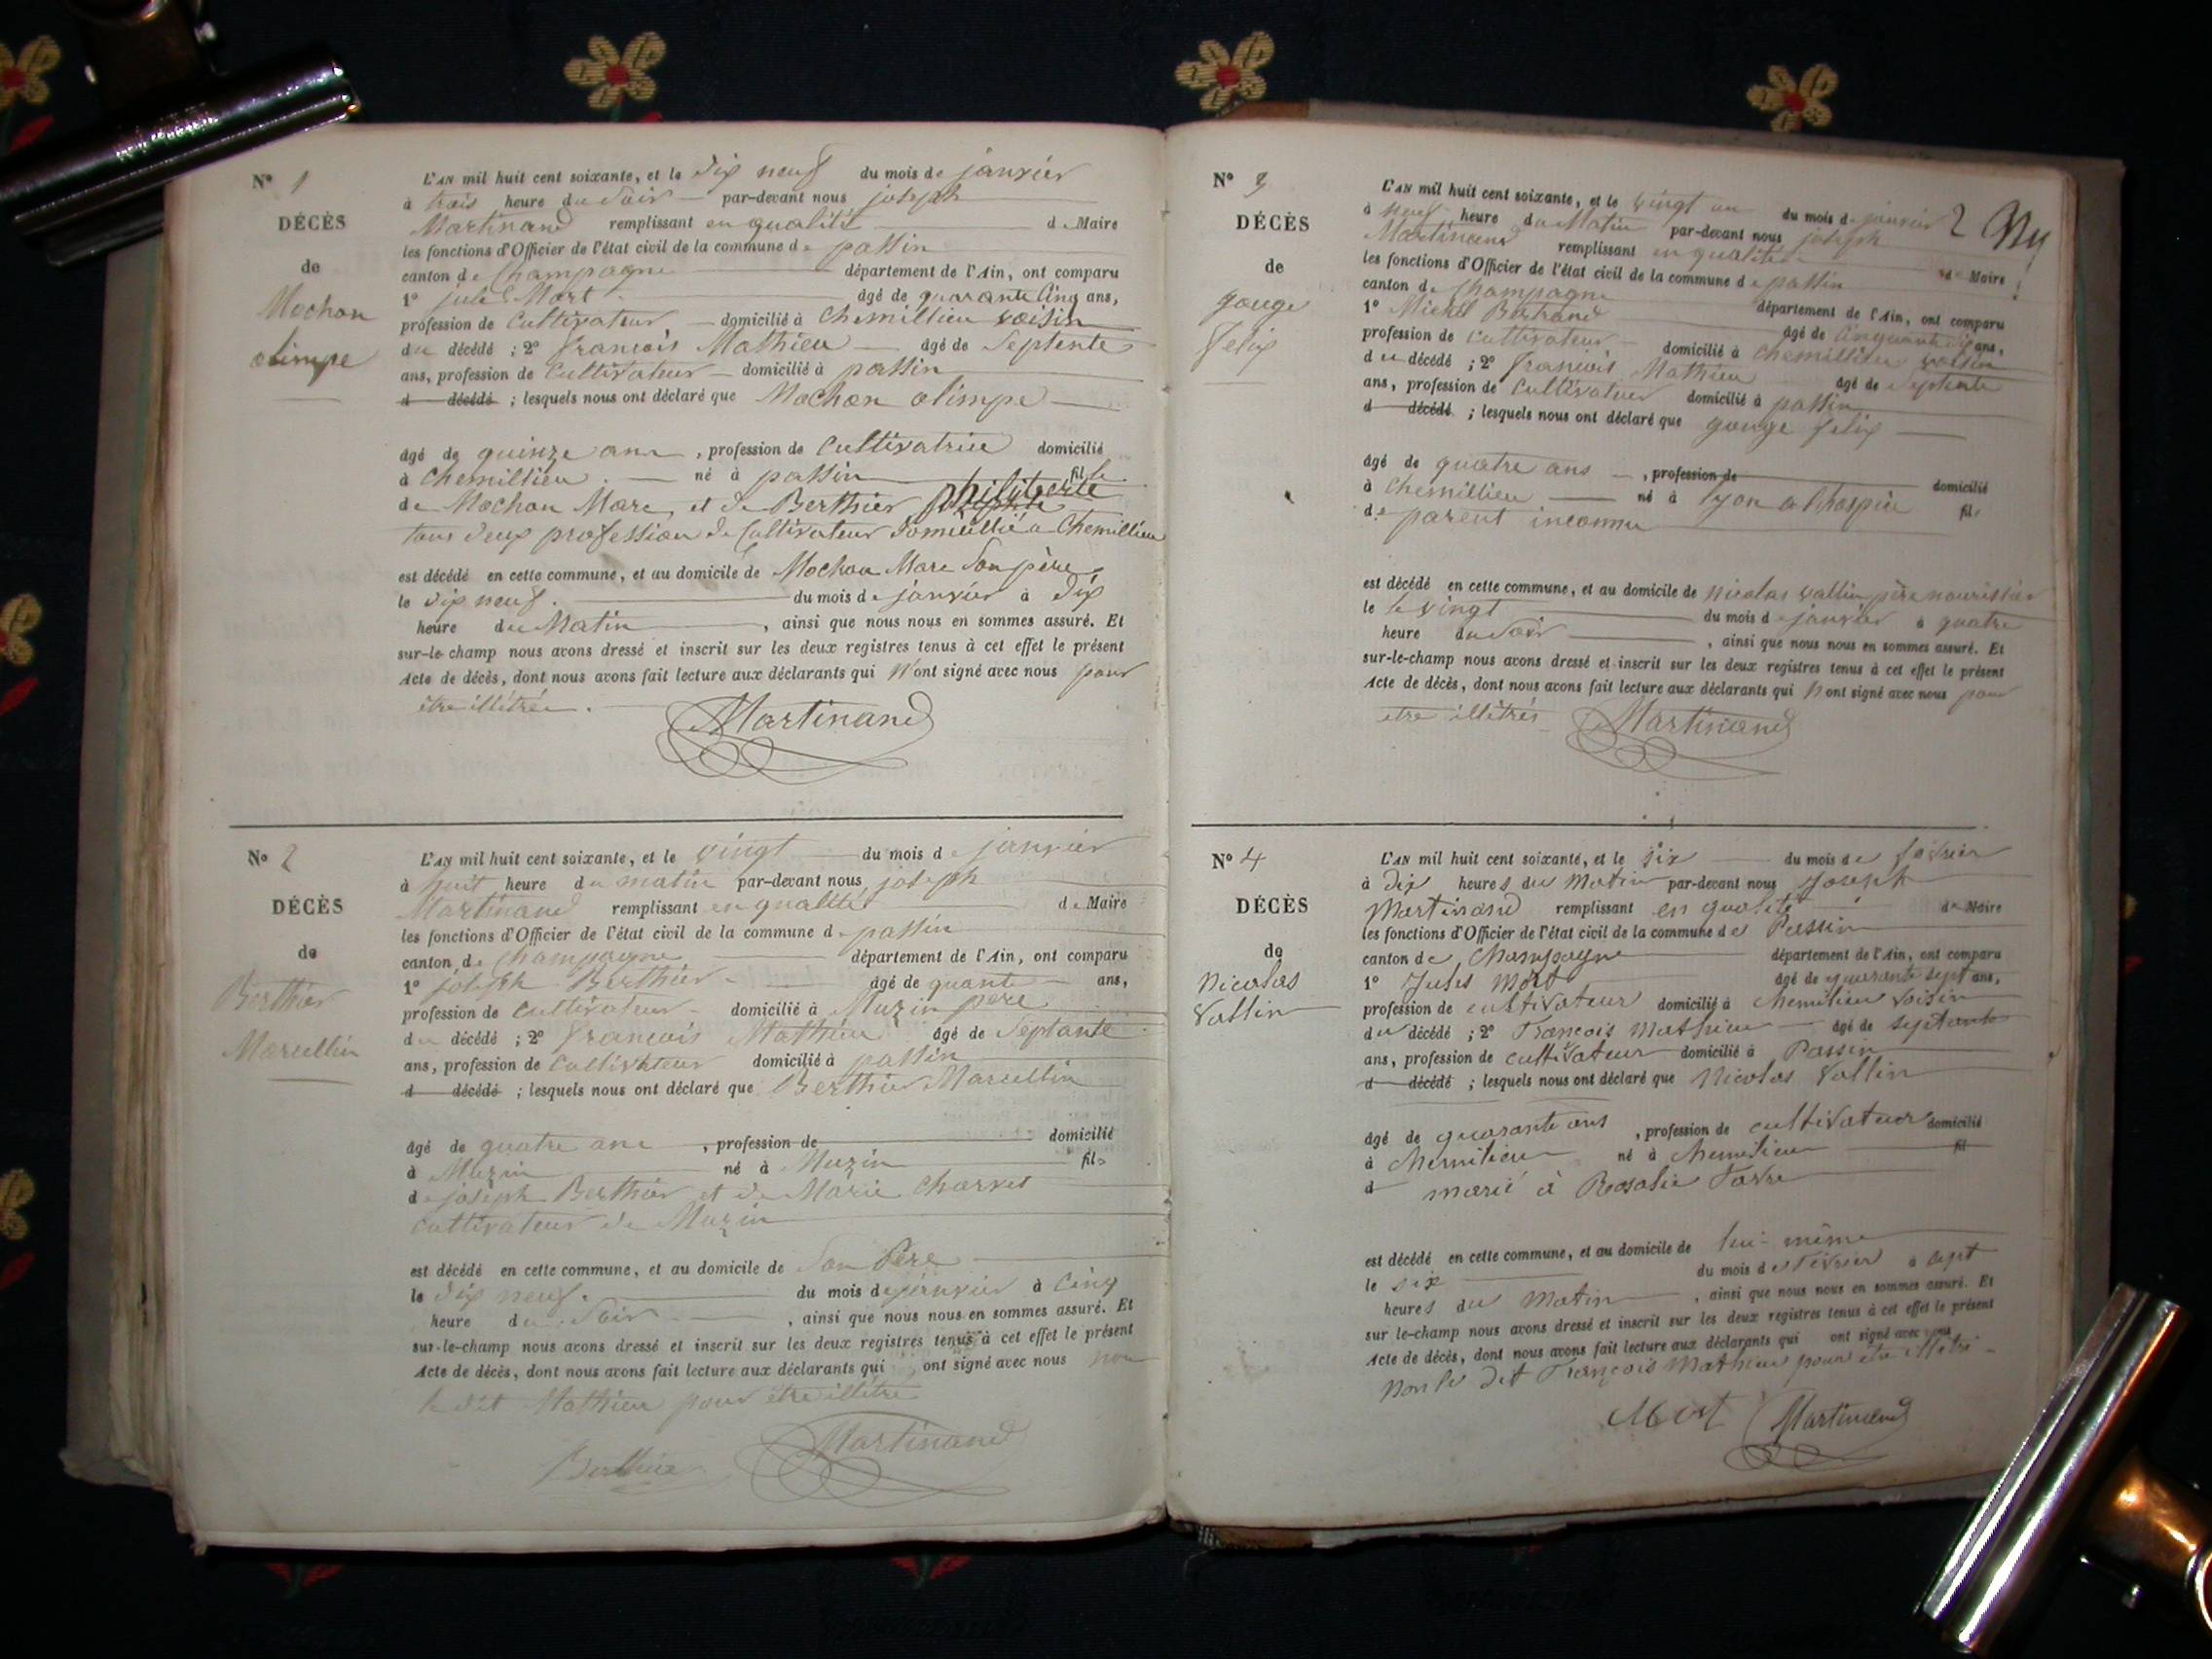 N° 1
DÉCÈS
de
Mochon
olimpe
L'AN mil huit cent soixante, et le dix neuf du mois de janvier
à trois heure du Soir par-devant nous joseph
Martinand remplissant en qualité de Maire
les fonctions d'Officier de l'état civil de la commune de passin
canton de Champagne département de l'Ain, ont comparu
1° jule Mort âgé de quarante Cinq ans,
profession de Cultivateur, domicilié à Chemillieu voisin
du décédé ; 2° francois Mathieu âgé de Septente
ans, profession de Cultivateur domicilié à passin
d décédé ; lesquels nous ont déclaré que Mochon olimpe
âgé de quinze ans, profession de Cultivatrice domicilié
à Chemillieu né à passin fille
de Mochon Marc et de Berthier philiberte
tous deux profession de Cultivateur domicillié a Chemillieu
est décédé en cette commune, et au domicile de Mochon Marc Son père
le dix neuf. du mois de janvier à dix
heure du Matin, ainsi que nous nous en sommes assuré. Et
sur-le-champ nous avons dressé et inscrit sur les deux registres tenus à cet effet le présent
Acte de décès, dont nous avons fait lecture aux déclarants qui N'ont signé avec nous pour
être illétrée.
Martinand
N° 2
DÉCÈS
de
Berthier
Marcellin
L'AN mil huit cent soixante, et le vingt du mois de janvier
à huit heure du matin par-devant nous joseph
Martinand remplissant en qualité de Maire
les fonctions d'Officier de l'état civil de la commune de passin
canton de Champagne département de l'Ain, ont comparu
1° joseph Berthier âgé de quante ans,
profession de Cultivateur domicilié à Muzin père
du décédé ; 2° francois Mathieu âgé de Septante
ans, profession de Cultivateur domicilié à passin
d décédé ; lesquels nous ont déclaré que Berthier Marcellin
âgé de quatre ans, profession de domicilié
à Muzin né à Muzin fils
de joseph Berthier et de Marie Charvet
cultivateur de Muzin
est décédé en cette commune, et au domicile de Son Père
le dix neuf. du mois de janvier à Cinq
heure du Soir, ainsi que nous nous en sommes assuré. Et
sur-le-champ nous avons dressé et inscrit sur les deux registres tenus à cet effet le présent
Acte de décès, dont nous avons fait lecture aux déclarants qui ont signé avec nous non
le dit Mathieu pour être illétre
Berthier Martinand
N° 3
DÉCÈS
de
gouge
felix
L'AN mil huit cent soixante, et le vingt un du mois de janvier 2
à neuf heure du Matin par-devant nous joseph
Martinand remplissant en qualité de Maire
les fonctions d'Officier de l'état civil de la commune de passin
canton de Champagne département de l'Ain, ont comparu
1° Michel Bertrand âgé de Cinquante ans,
profession de Cultivateur domicilié à Chemillieu voisin
du décédé ; 2° francois Mathieu âgé de Septente
ans, profession de Cultivateur domicilié à passin
d décédé ; lesquels nous ont déclaré que gouge felix
âgé de quatre ans, profession de domicilié
à Chemillieu né à lyon a l'hospice fils
de parent inconnu
est décédé en cette commune, et au domicile de nicolas vallin père nourissier
le le vingt du mois de janvier à quatre
heure du Soir, ainsi que nous nous en sommes assuré. Et
sur-le-champ nous avons dressé et inscrit sur les deux registres tenus à cet effet le présent
Acte de décès, dont nous avons fait lecture aux déclarants qui N ont signé avec nous pour
etre illétrés
Martinand
N° 4
DÉCÈS
de
Nicolas
Vallin
L'AN mil huit cent soixante, et le six du mois de février
à dix heures du Matin par-devant nous Joseph
Martinand remplissant en qualité de Maire
les fonctions d'Officier de l'état civil de la commune de Passin
canton de Champagne département de l'Ain, ont comparu
1° Jules Mort âgé de quarante sept ans,
profession de cultivateur domicilié à Chemilieu voisin
du décédé ; 2° François Mathieu âgé de septante
ans, profession de cultivateur domicilié à Passin
d décédé ; lesquels nous ont déclaré que Nicolas Vallin
âgé de quarante ans, profession de cultivateur domicilié
à Chemilieu né à Chemilieu fil
d marié à Rosalie Favre
est décédé en cette commune, et au domicile de lui-même
le six du mois de février à sept
heures du Matin, ainsi que nous nous en sommes assuré. Et
sur le-champ nous avons dressé et inscrit sur les deux registres tenus à cet effet le présent
Acte de décès, dont nous avons fait lecture aux déclarants qui ont signé avec nous
non le dit François Mathieu pour être illétré
Mort Martinand